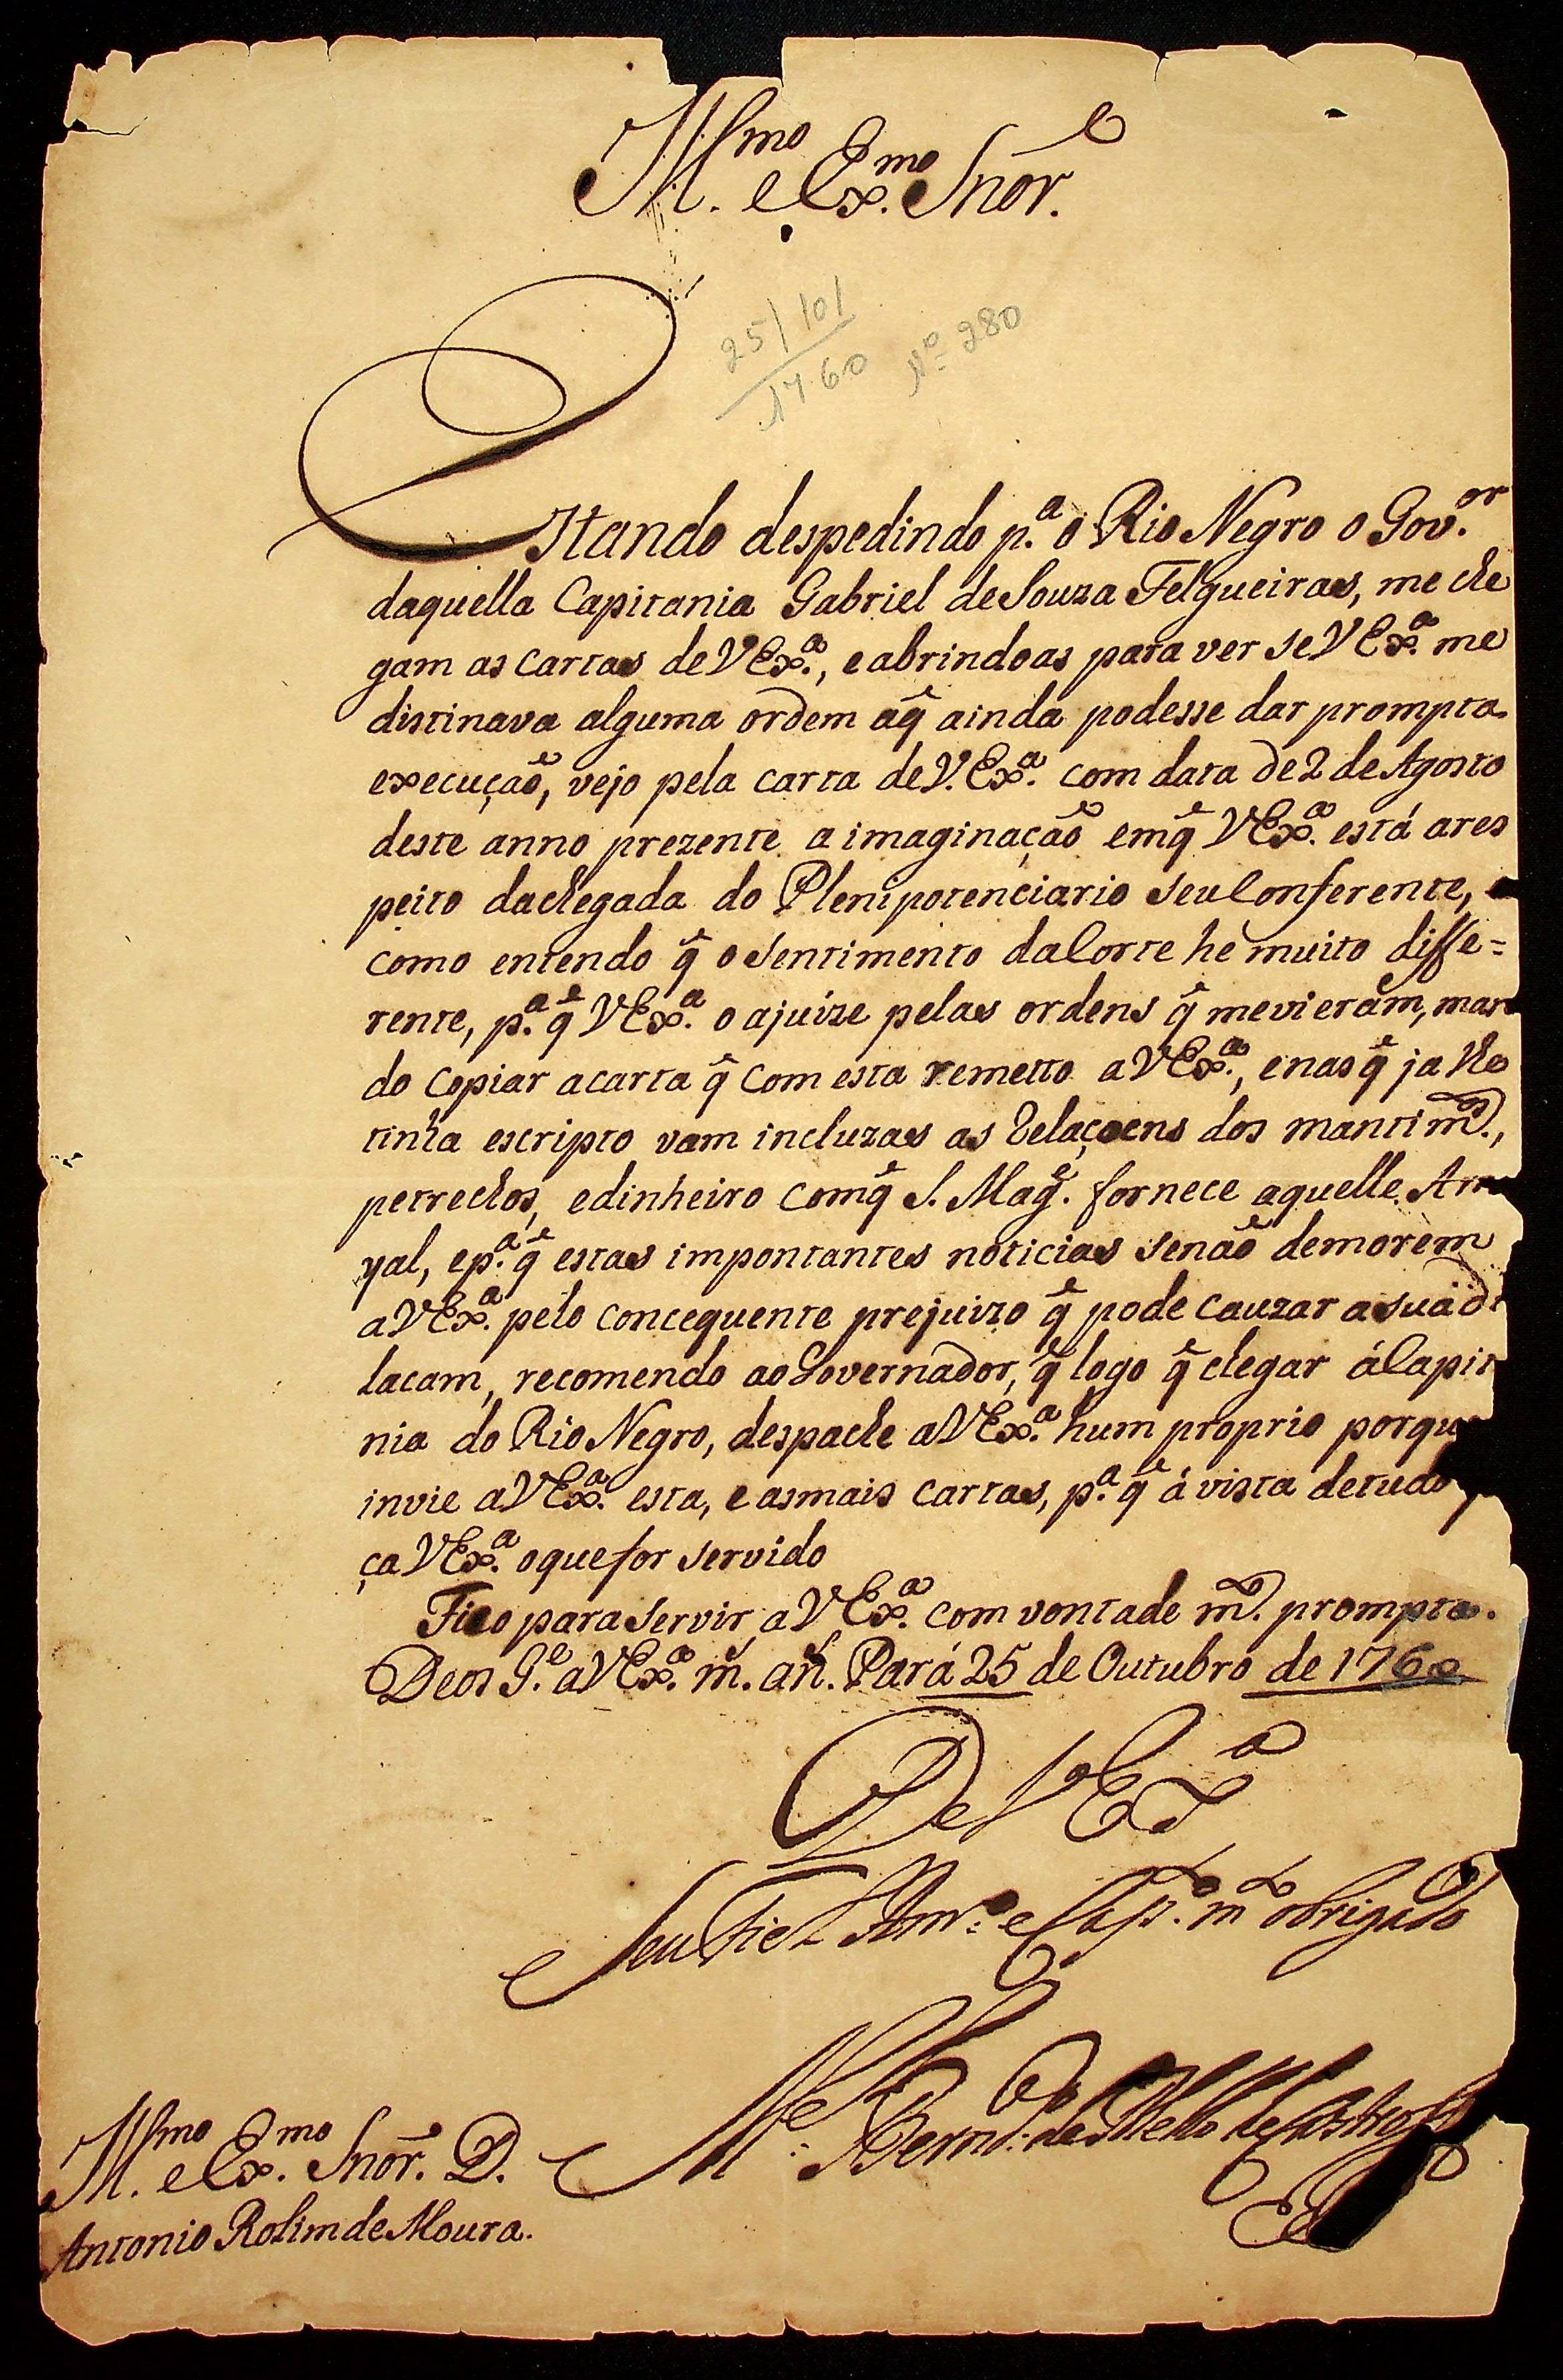 Ill.mo e Ex.mo Snõr.
25/10/
1760
Nº 280
Estando despedindo p.a o Rio Negro o Gov.or
daquella Capitania Gabriel de Souza Felgueiras, me che
gam as cartas de V Ex.a, e abrindoas para ver se V Ex.a me
distinava alguma ordem aq̃ ainda podesse dar prompta
execução, vejo pela carta de V. Ex.a com data de 2 de Agosto
deste anno prezente a imaginação emq̃ V Ex.a está ares
peito dachegada do Plenipotenciario seu Conferente, e
como entendo q̃ o sentimento da Corte he muito diffe=
rente, p.a q̃ V Ex.a o ajuize pelas ordens q̃ mevieram, man
do copiar acarta q̃ com esta remetto a V Ex.a, enas q̃ ja lhe
tinha escripto vam incluzas as Relaçoens dos mantim.tos,
petrechos, edinheiro comq̃ S. Mag.e fornece aquelle Arra
yal, ep.a q̃ estas importantes noticias senão demorem
a V Ex.a pelo concequente prejuizo q̃ pode cauzar asua di
lacam, recomendo ao Governador, q̃ logo q̃ chegar á Capit
nia do Rio Negro, despache a V Ex.a hum proprio porqu
invie a V Ex.a esta, e asmais cartas, p.a q̃ á vista detudo
ça V Ex.a oquefor servido
Fico para servir a V Ex.a com vontade m.to prompta.
Deos G.e a V Ex.a m.s an.s Pará 25 de Outubro de 1760
De V Ex.a
Seu Fiel Am.o e Cap. m.to obrigado
M.el Bern.do de Mello de Castro
Ill.mo e Ex.mo Snõr. D.
Antonio Rolim de Moura.